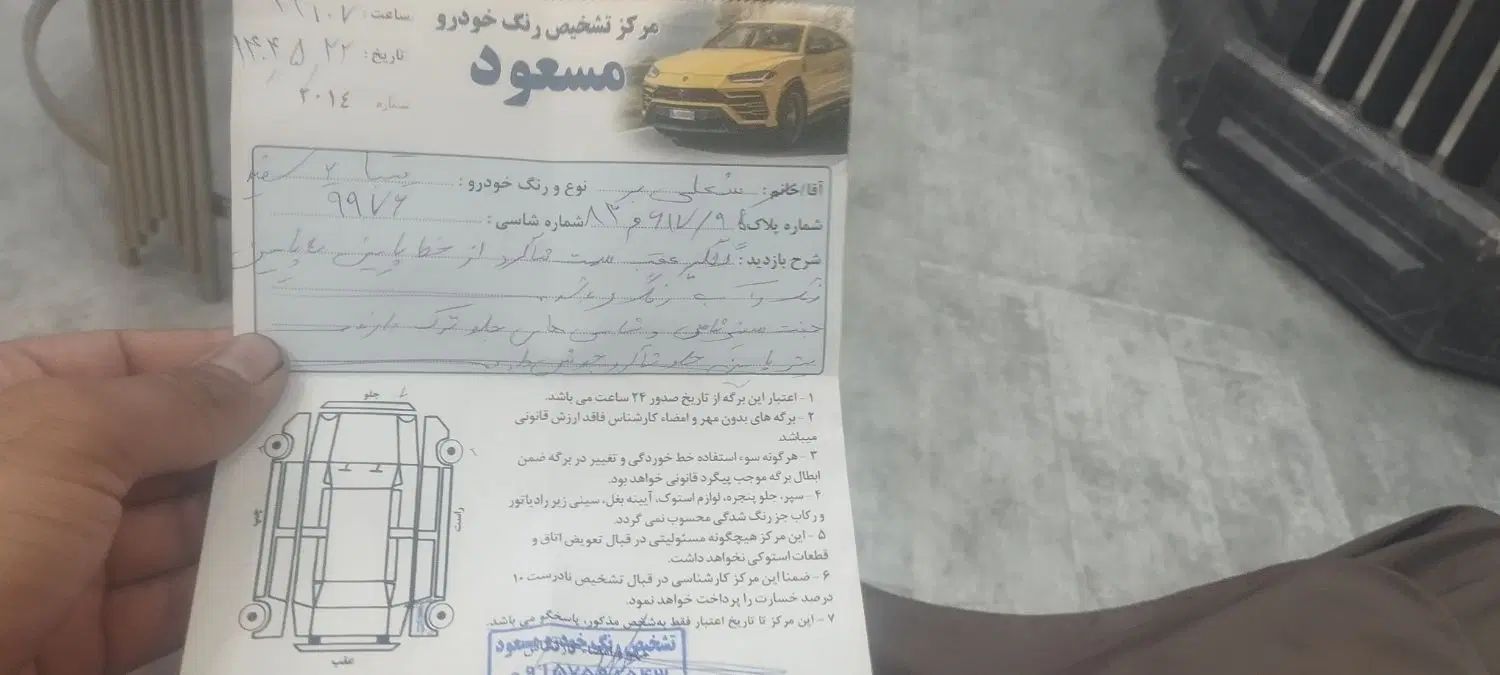 مرکز تشخیص رنگ خودرو
مسعود
ساعت:
تاریخ:
شماره ۲۰۱٤
آقا/خانم: نوع و رنگ خودرو: تیبا ۲ سفید
شماره پلاک: شماره شاسی: ۹۹۷۶
شرح بازدید: گلگیر عقب سمت شاگرد از خط پایین به پایین
رنگ و
جفت سینی شاسی و شاسی های جلو ترک دارند
جلو شاگرد
۱- اعتبار این برگه از تاریخ صدور ۲۴ ساعت می باشد.
۲- برگه های بدون مهر و امضاء کارشناس فاقد ارزش قانونی
میباشد
۳- هرگونه سوء استفاده خط خوردگی و تغییر در برگه ضمن
ابطال برگه موجب پیگرد قانونی خواهد بود.
۴- سپر، جلو پنجره، لوازم استوک، آیینه بغل، سینی زیر رادیاتور
و رکاب جز رنگ شدگی محسوب نمی گردد.
۵- این مرکز هیچگونه مسئولیتی در قبال تعویض اتاق و
قطعات استوکی نخواهد داشت.
۶- ضمنا این مرکز کارشناسی در قبال تشخیص نادرست ۱۰
درصد خسارت را پرداخت خواهد نمود.
۷- این مرکز تا تاریخ اعتبار فقط به شخص مذکور، پاسخگو می باشد.
جلو
راست
چپ
عقب
تشخیص رنگ خودرو مسعود